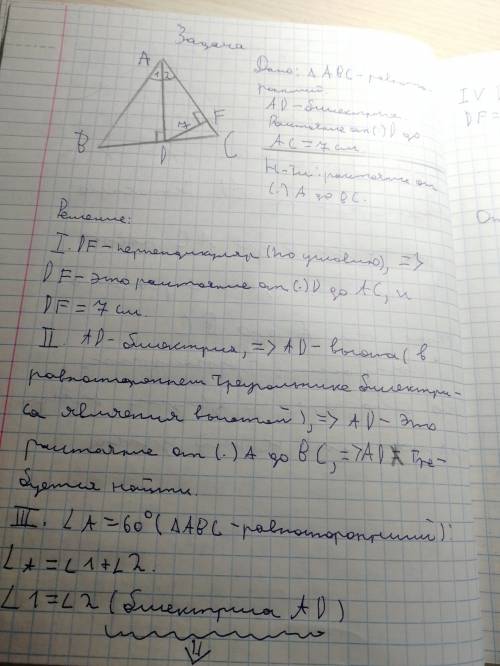 Задача
A
1 2
7
F
B
D
C
Дано: △ABC - равносто-
ронний
AD - биссектриса
Расстояние от (.) D до
AC = 7 см
Н-ти: расстояние от
(.) A до BC.
IV
DF =
От
Решение:
I. DF - перпендикуляр (по условию), =>
DF - это расстояние от (.) D до AC, и
DF = 7 см.
II. AD - биссектриса, => AD - высота (в
равностороннем треугольнике биссектри-
са является высотой), => AD - это
расстояние от (.) A до BC, => AD тре-
буется найти.
III. ∠A = 60° (△ABC - равносторонний):
∠A = ∠1 + ∠2.
∠1 = ∠2 (биссектриса AD)